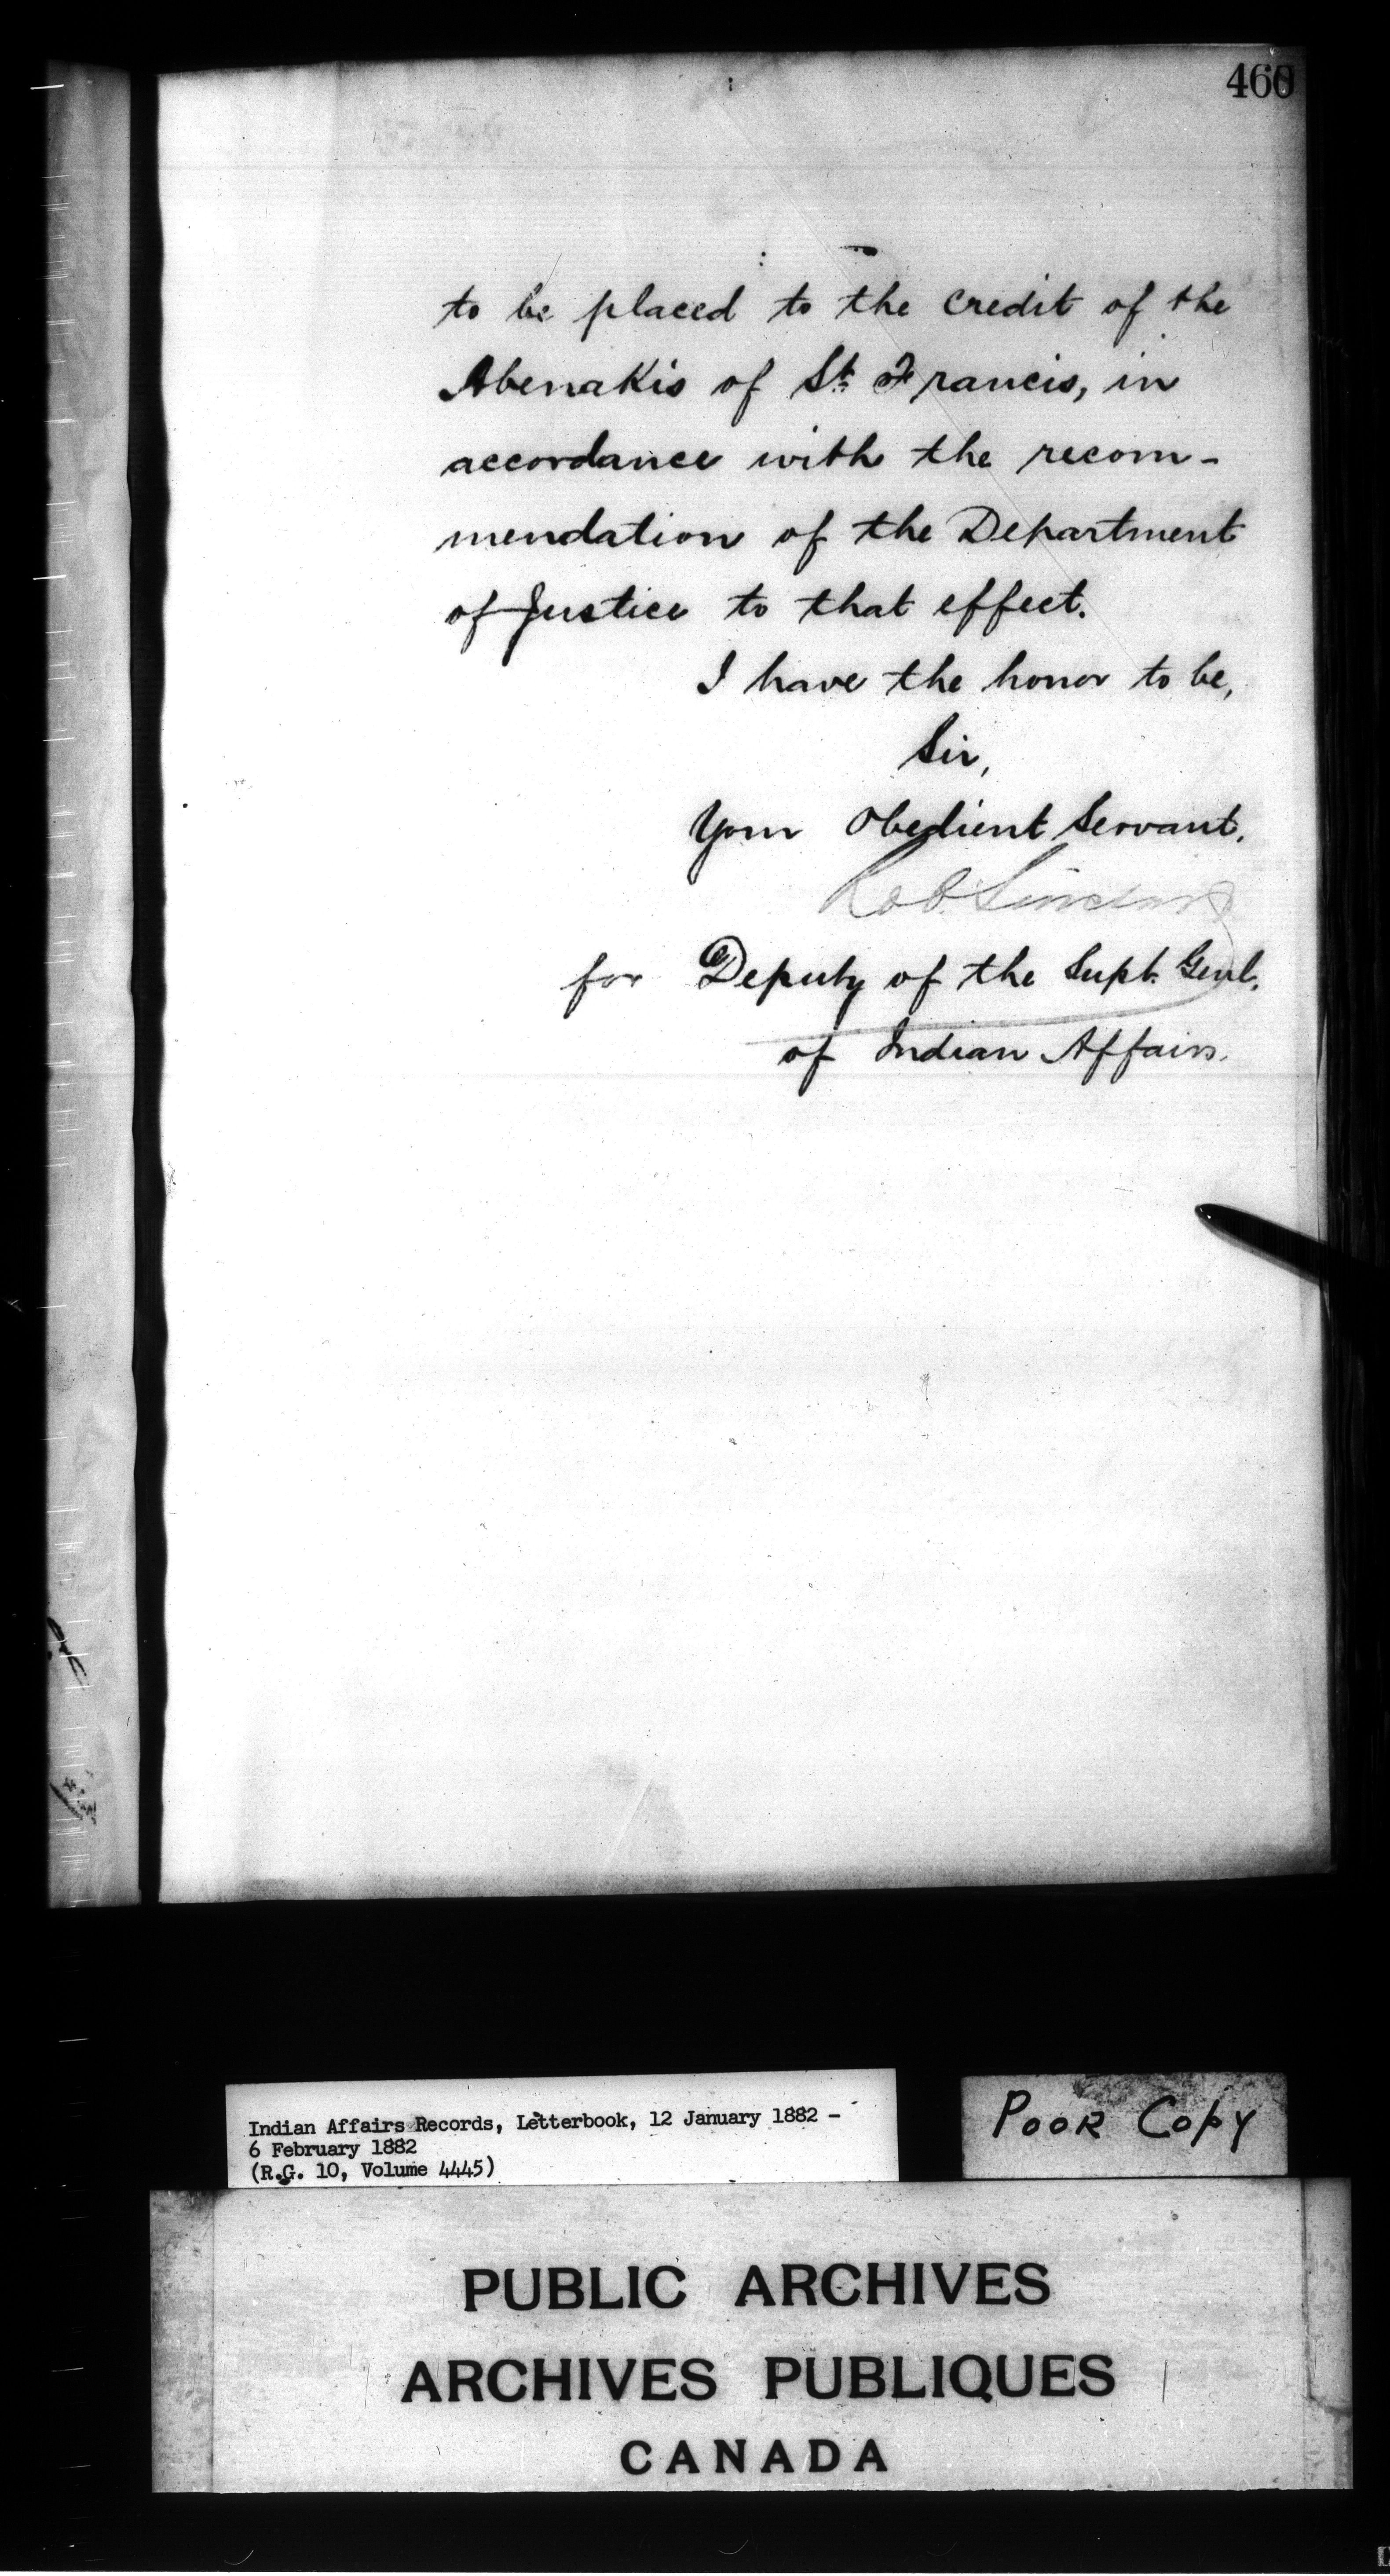 460
to be placed to the credit of the
Abenakis of St. Francis, in
accordance with the recom-
mendation of the Department
of Justice to that effect.
I have the honor to be,
Sir,
Your Obedient Servant.
Rob. Sinclair
for Deputy of the Supt. Genl.
of Indian Affairs.
Indian Affairs Records, Letterbook, 12 January 1882 -
6 February 1882
(R.G. 10, Volume 4445)
POOR COPY
PUBLIC ARCHIVES
ARCHIVES PUBLIQUES
CANADA